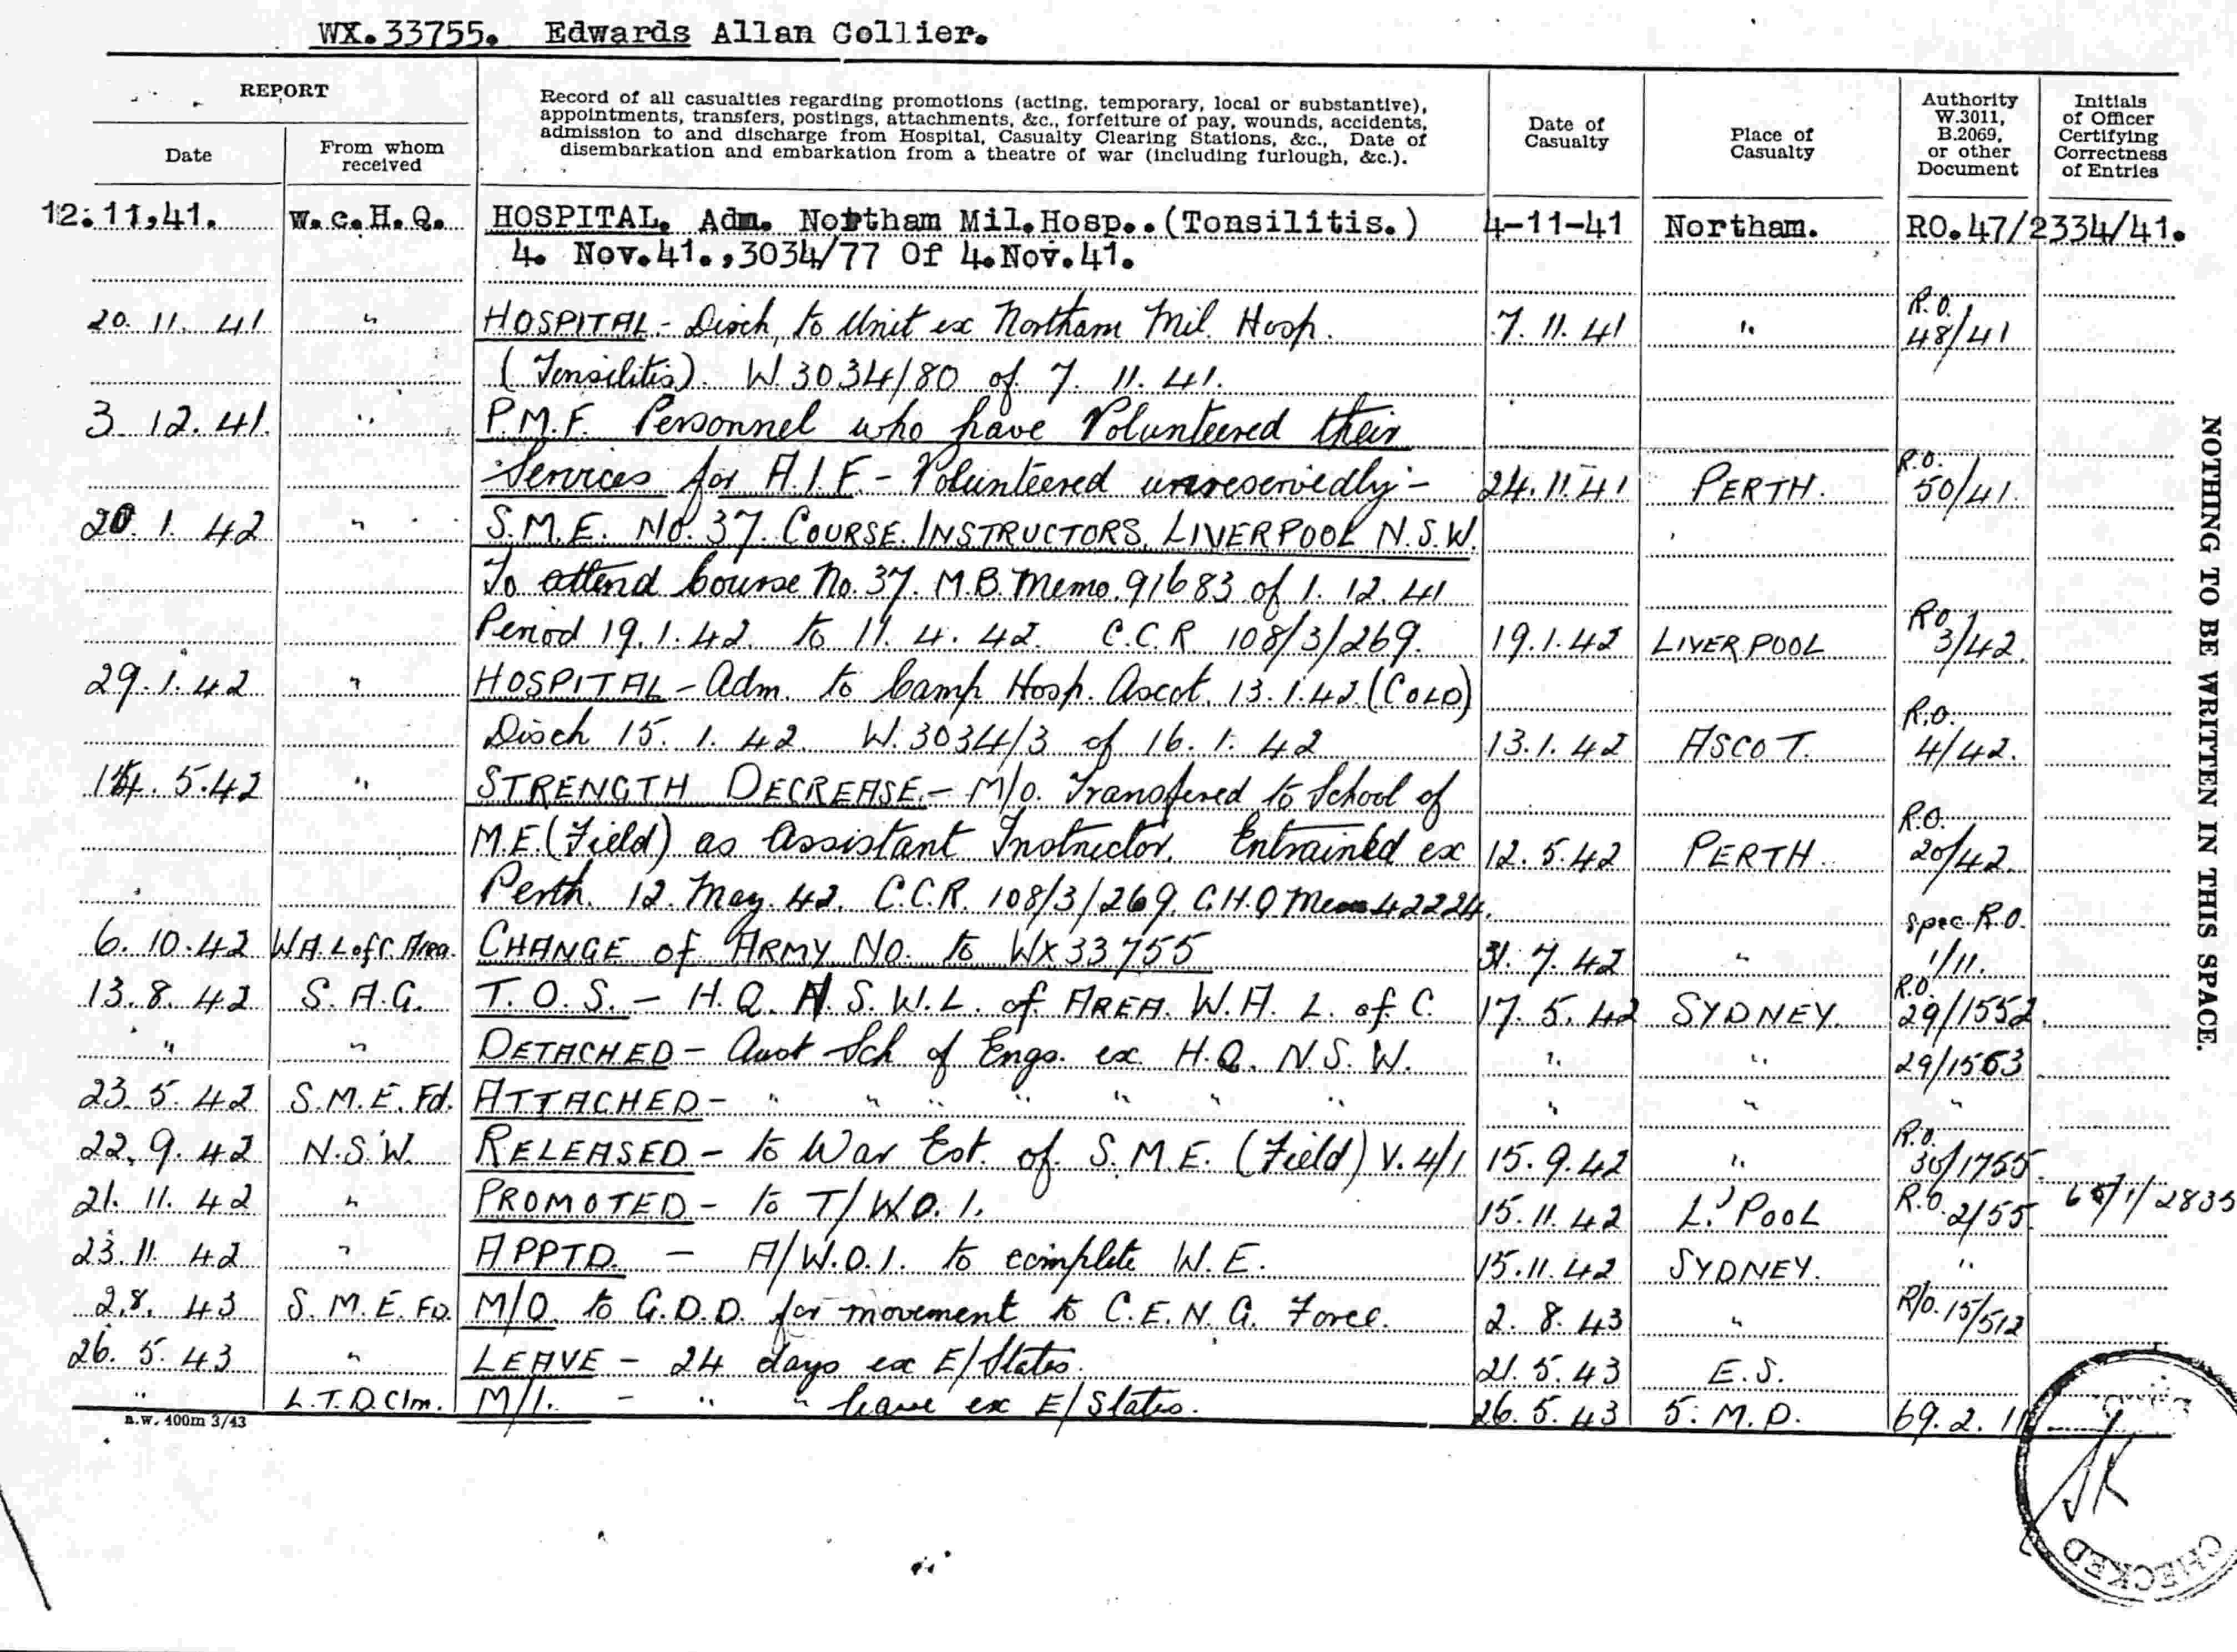 WX.33755. Edwards Allan Collier.
REPORT
Date
From whom received
Record of all casualties regarding promotions (acting, temporary, local or substantive),
appointments, transfers, postings, attachments, &c., forfeiture of pay, wounds, accidents,
admission to and discharge from Hospital, Casualty Clearing Stations, &c., Date of
disembarkation and embarkation from a theatre of war (including furlough, &c.).
Date of Casualty
Place of Casualty
Authority W.3011, B.2069, or other Document
Initials of Officer Certifying Correctness of Entries
12.11,41. W.C.H.Q. HOSPITAL. Adm. Northam Mil.Hosp..(Tonsilitis.) 4-11-41 Northam. RO.47/2334/41.
4. Nov.41.,3034/77 Of 4.Nov.41.
20. 11. 41 " HOSPITAL - Disch to Unit ex Northam Mil. Hosp. 7. 11. 41 " R.O. 48/41
(Tonsilitis). W.3034/80 of 7. 11. 41.
3. 12. 41. " P.M.F. Personnel who have Volunteered their
Services for A.I.F. - Volunteered unreservedly - 24.11.41 PERTH. R.O. 50/41.
20. 1. 42 " S.M.E. No. 37. COURSE. INSTRUCTORS. LIVERPOOL N.S.W.
To attend Course No. 37. M.B. Memo. 91683 of 1. 12. 41
Period 19.1.42. to 11. 4. 42. C.C.R. 108/3/269. 19.1.42 LIVERPOOL RO 3/42.
29.1.42 " HOSPITAL - Adm. to Camp Hosp. Ascot. 13.1.42. (COLD)
Disch 15. 1. 42. W. 3034/3 of 16. 1. 42 13.1.42 ASCOT. R.O. 4/42.
14. 5.42 " STRENGTH DECREASE. - M/O. Transfered to School of
M.E. (Field) as Assistant Instructor. Entrained ex 12.5.42 PERTH. R.O. 20/42.
Perth. 12. May. 42. C.C.R. 108/3/269. G.H.Q Memo 42224.
6. 10. 42 W.A. L of C. Area. CHANGE of ARMY NO. to WX33755 31. 7. 42 " Spec. R.O. 1/11.
13. 8. 42 S. A. G. T. O. S. - H. Q. N. S. W. L. of AREA. W. A. L. of C. 17. 5. 42 SYDNEY. R.O. 29/1552.
" " DETACHED - Aust Sch of Engs. ex H.Q. N.S.W. " " 29/1563
23. 5. 42 S.M.E. Fd. ATTACHED - " " " " " " " " " "
22. 9. 42 N.S.W. RELEASED - to War Est. of S.M.E. (Field) V. 4/1 15. 9. 42 " R.O. 30/1755.
21. 11. 42 " PROMOTED - to T/WO. 1. 15. 11. 42 L'POOL R.O. 2/55. /1/2835
23. 11. 42 " APPTD. - A/W.O.1. to complete W.E. 15.11.42 SYDNEY. "
2.8. 43 S.M.E. FD. M/O. to G.D.D. for movement to C.E.N.G. Force. 2. 8. 43 " R/O. 15/512
26. 5. 43 " LEAVE - 24 days ex E/States. 21. 5. 43 E.S.
" L.T.D. Clm. M/I. - " " leave ex E/States. 26. 5. 43 5. M. D. 69. 2. 11
B.W. 400m 3/43
NOTHING TO BE WRITTEN IN THIS SPACE.
CHECKED